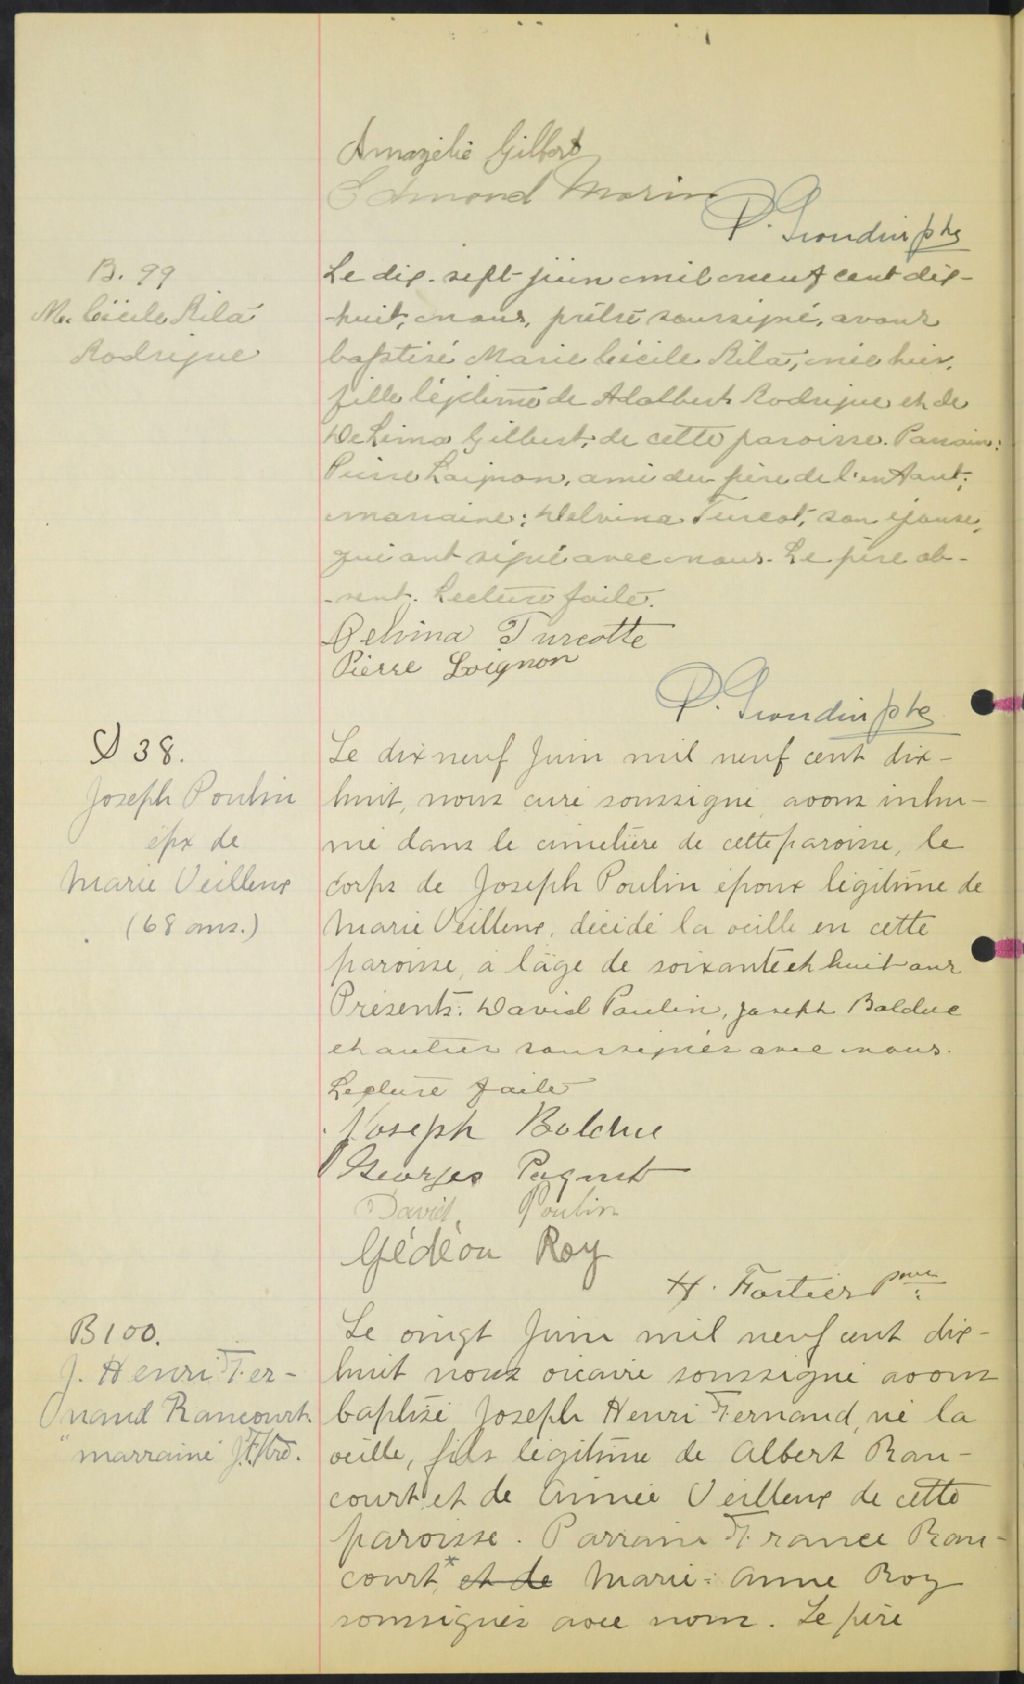 Amazélie Gilbert
Edmond Morin
P. Grondin ptre
B. 99
M. Cécile Rila
Rodrigue
Le dix-sept juin mil neuf cent dix-
-huit, nous, prêtre soussigné, avons
baptisé Marie Cécile Rila, née hier,
fille légitime de Adalbert Rodrigue et de
Delima Gilbert, de cette paroisse. Parrain:
Pierre Loignon, ami du père de l'enfant;
marraine: Delvina Turcot, son épouse,
qui ont signé avec nous. Le père ab-
-sent. Lecture faite.
Delvina Turcotte
Pierre Loignon
P. Grondin ptre
D 38.
Joseph Poulin
épx de
Marie Veilleux
(68 ans.)
Le dix neuf Juin mil neuf cent dix-
huit, nous curé soussigné avons inhu-
mé dans le cimetière de cette paroisse, le
corps de Joseph Poulin époux légitime de
Marie Veilleux, décédé la veille en cette
paroisse, à l'âge de soixante et huit ans
Présents: David Poulin, Joseph Bolduc
et autres soussignés avec nous.
Lecture faite
Joseph Bolduc
Georges Paquet
David Poulin
Gédéon Roy
H. Fortier
B100.
J. Henri Fer-
nand Rancourt
marraine J.F.
Le vingt Juin mil neuf cent dix-
huit nous vicaire soussigné avons
baptisé Joseph Henri Fernand, né la
veille, fils légitime de Albert Ran-
court et de Aimée Veilleux de cette
paroisse. Parrain France Ran-
court,* et de Marie-Anne Roy
soussignés avec nous. Le père